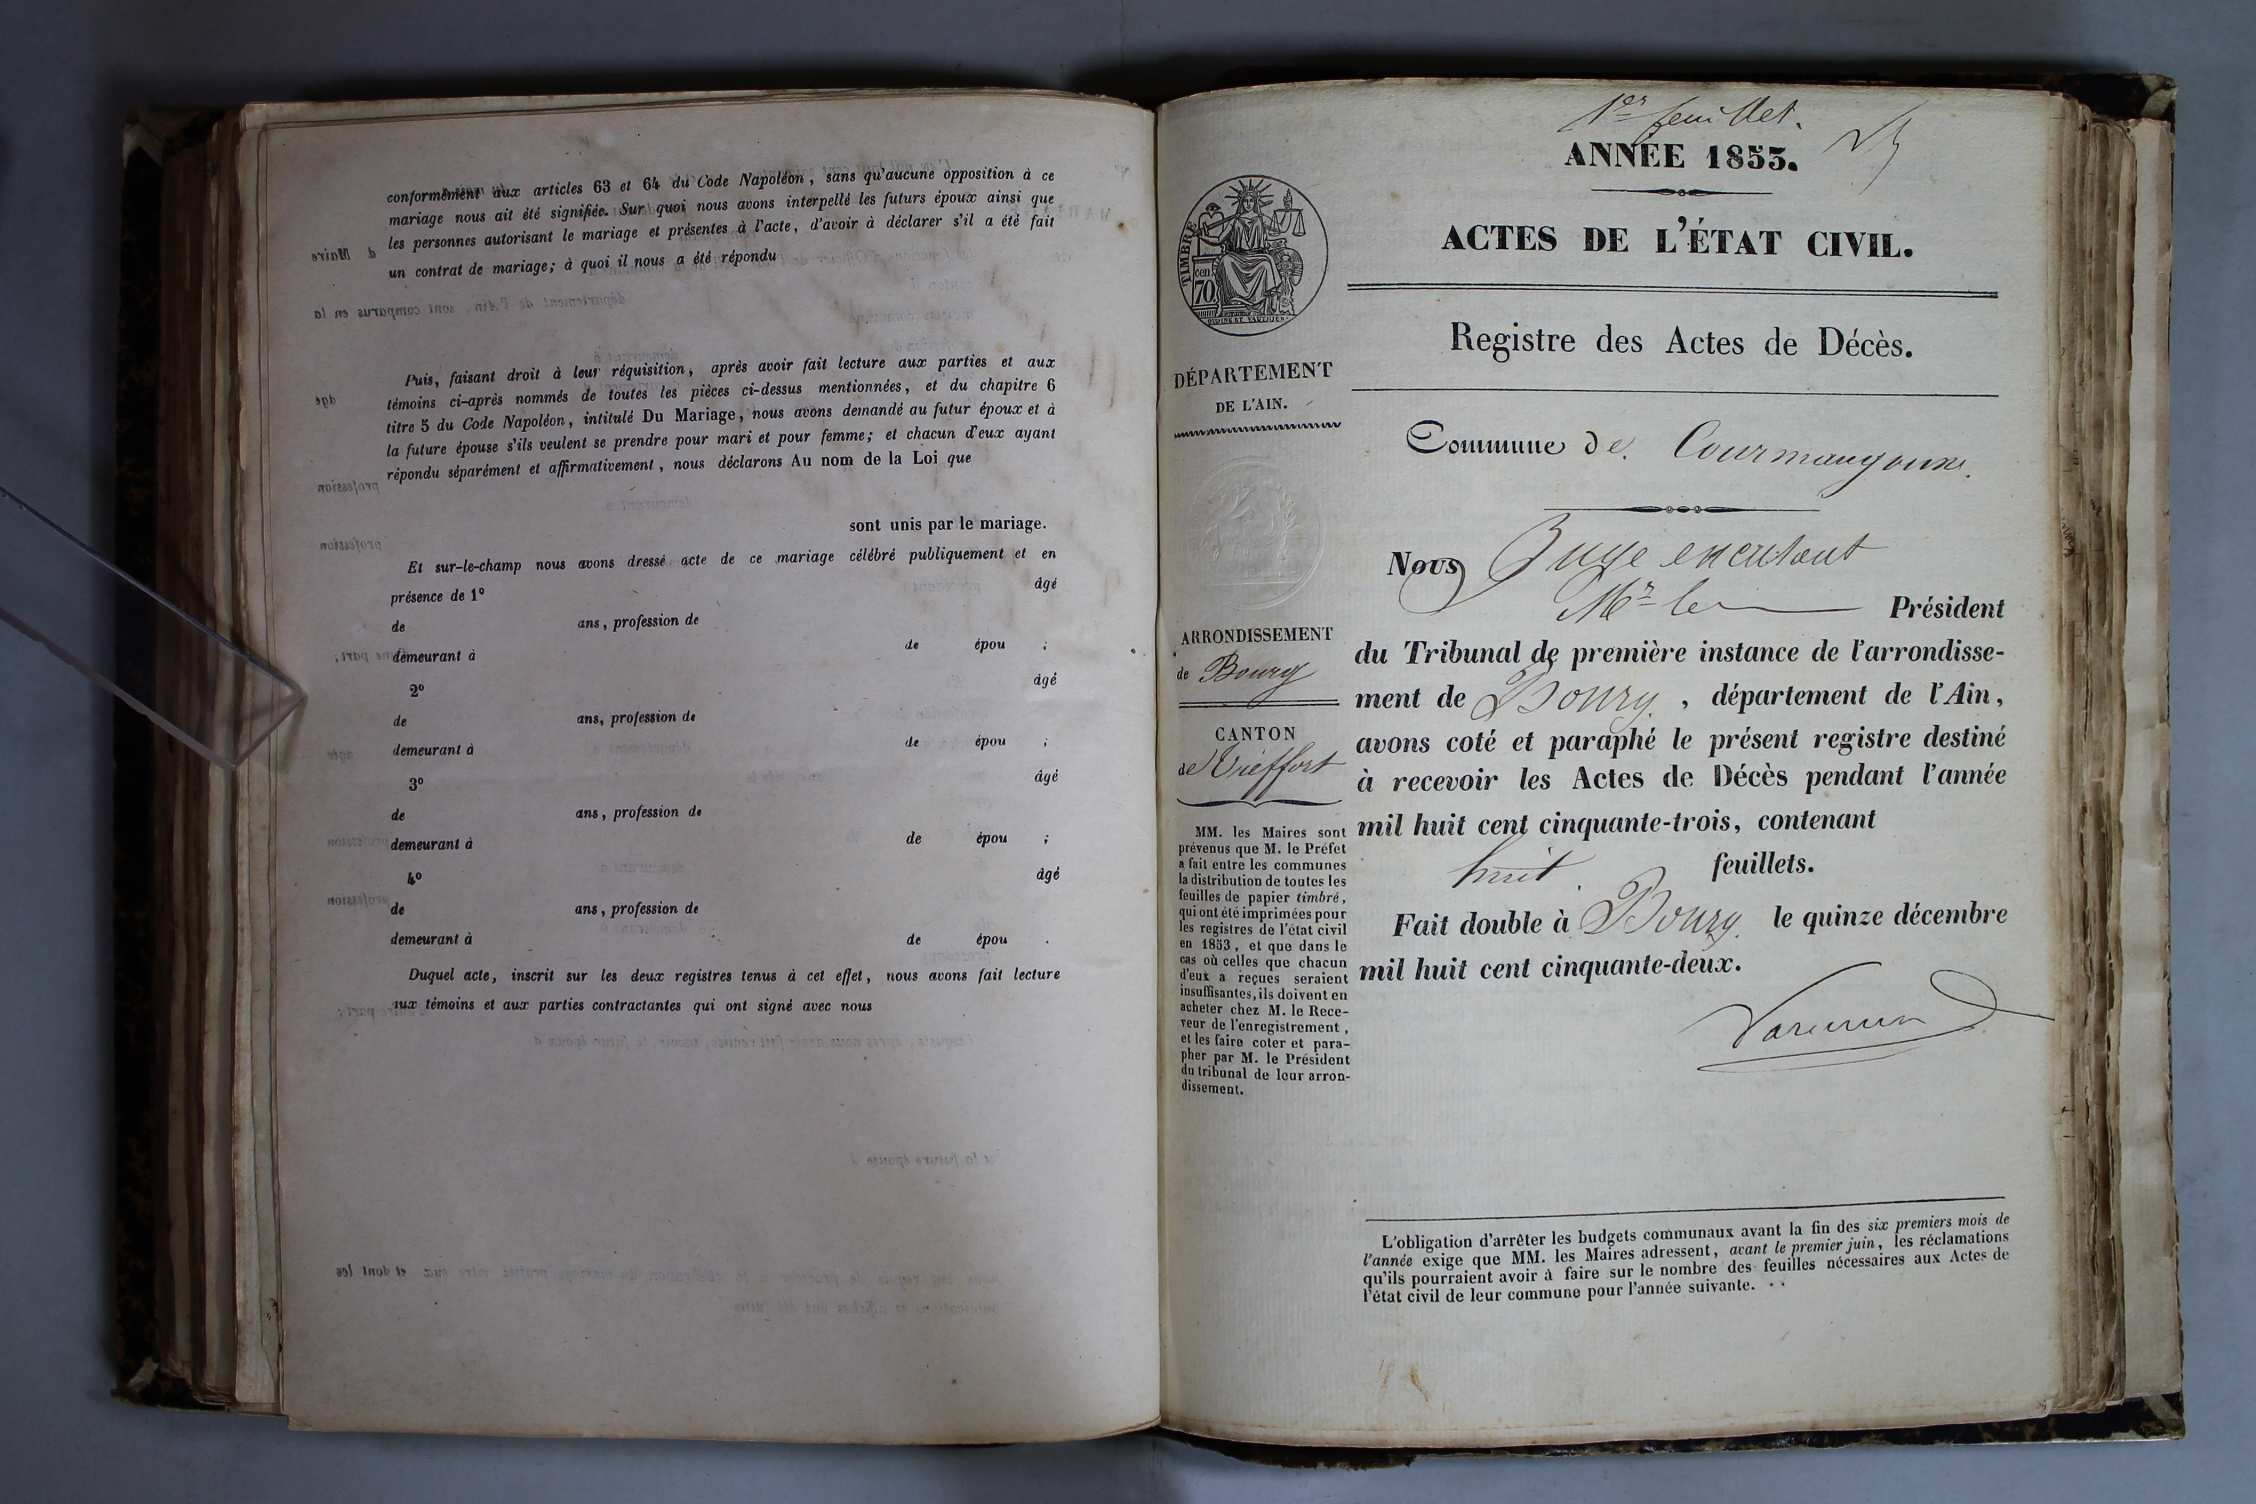 conformément aux articles 63 et 64 du Code Napoléon, sans qu'aucune opposition à ce
mariage nous ait été signifiée. Sur quoi nous avons interpellé les futurs époux ainsi que
les personnes autorisant le mariage et présentes à l'acte, d'avoir à déclarer s'il a été fait
un contrat de mariage; à quoi il nous a été répondu
Puis, faisant droit à leur réquisition, après avoir fait lecture aux parties et aux
témoins ci-après nommés de toutes les pièces ci-dessus mentionnées, et du chapitre 6
titre 5 du Code Napoléon, intitulé Du Mariage, nous avons demandé au futur époux et à
la future épouse s'ils veulent se prendre pour mari et pour femme; et chacun d'eux ayant
répondu séparément et affirmativement, nous déclarons Au nom de la Loi que
sont unis par le mariage.
Et sur-le-champ nous avons dressé acte de ce mariage célébré publiquement et en
présence de 1º âgé
de ans, profession de
demeurant à de épou ;
2º âgé
de ans, profession de
demeurant à de épou ;
3º âgé
de ans, profession de
demeurant à de épou ;
4º âgé
de ans, profession de
demeurant à de épou .
Duquel acte, inscrit sur les deux registres tenus à cet effet, nous avons fait lecture
aux témoins et aux parties contractantes qui ont signé avec nous
1er feuillet.
ANNÉE 1853.
ACTES DE L'ÉTAT CIVIL.
Registre des Actes de Décès.
TIMBRE
cen
70
DÉPARTEMENT
DE L'AIN.
Commune de Courmangoux.
Nous Juge exécutant
Mr le Président
du Tribunal de première instance de l'arrondisse-
ment de Bourg, département de l'Ain,
avons coté et paraphé le présent registre destiné
à recevoir les Actes de Décès pendant l'année
mil huit cent cinquante-trois, contenant
huit feuillets.
Fait double à Bourg le quinze décembre
mil huit cent cinquante-deux.
ARRONDISSEMENT
de Bourg
CANTON
de Treffort
MM. les Maires sont
prévenus que M. le Préfet
a fait entre les communes
la distribution de toutes les
feuilles de papier timbré,
qui ont été imprimées pour
les registres de l'état civil
en 1853, et que dans le
cas où celles que chacun
d'eux a reçues seraient
insuffisantes, ils doivent en
acheter chez M. le Rece-
veur de l'enregistrement,
et les faire coter et para-
pher par M. le Président
du tribunal de leur arron-
dissement.
L'obligation d'arrêter les budgets communaux avant la fin des six premiers mois de
l'année exige que MM. les Maires adressent, avant le premier juin, les réclamations
qu'ils pourraient avoir à faire sur le nombre des feuilles nécessaires aux Actes de
l'état civil de leur commune pour l'année suivante.